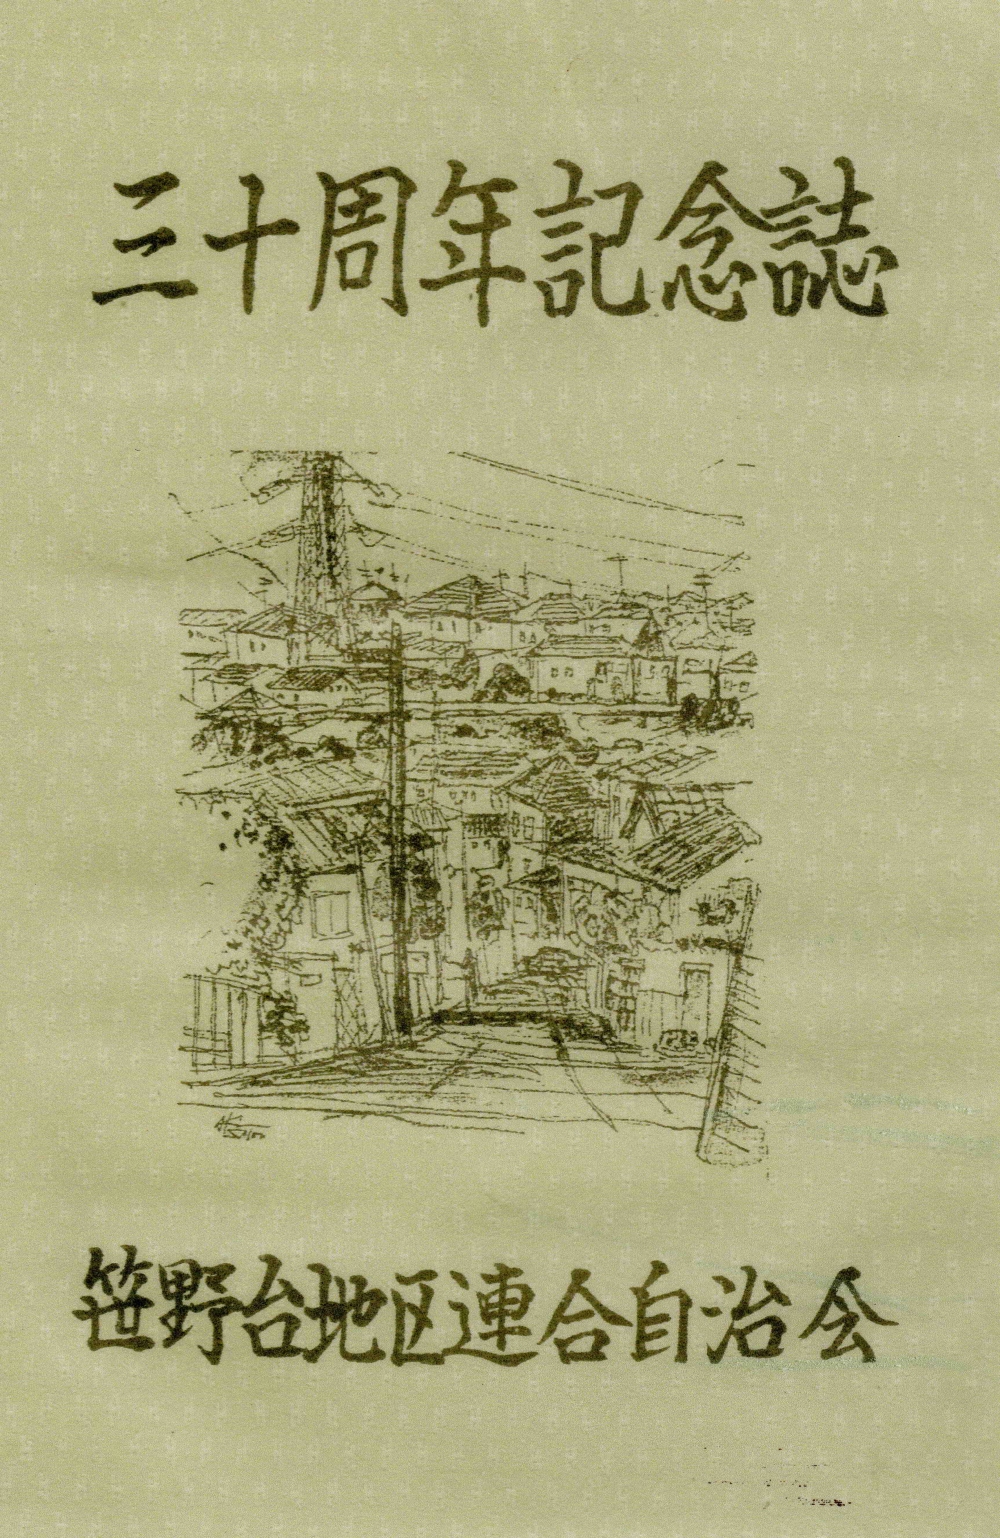 三十周年記念誌
笹野台地区連合自治会